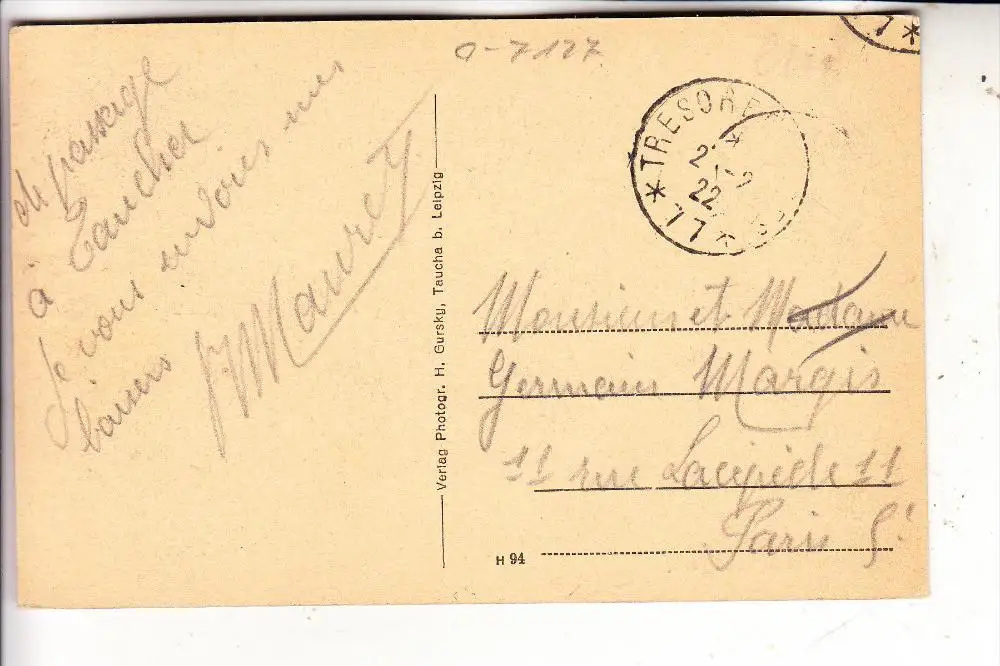 0-7127
de passage
à Taucha
Je vous envoies mes
baisers
Maurey
Verlag Photogr. H. Gursky, Taucha b. Leipzig
* TRESOR E
22
77 *
7 *
Monsieur et Madame
Germain Margis
11 rue Lacépède 11
Paris 5e
H 94